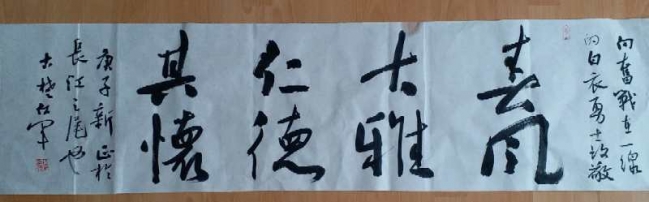 向奮戰在一線
的白衣勇士致敬
春風
大雅
仁德
其懷
庚子新正於
長江之尾也
古楚